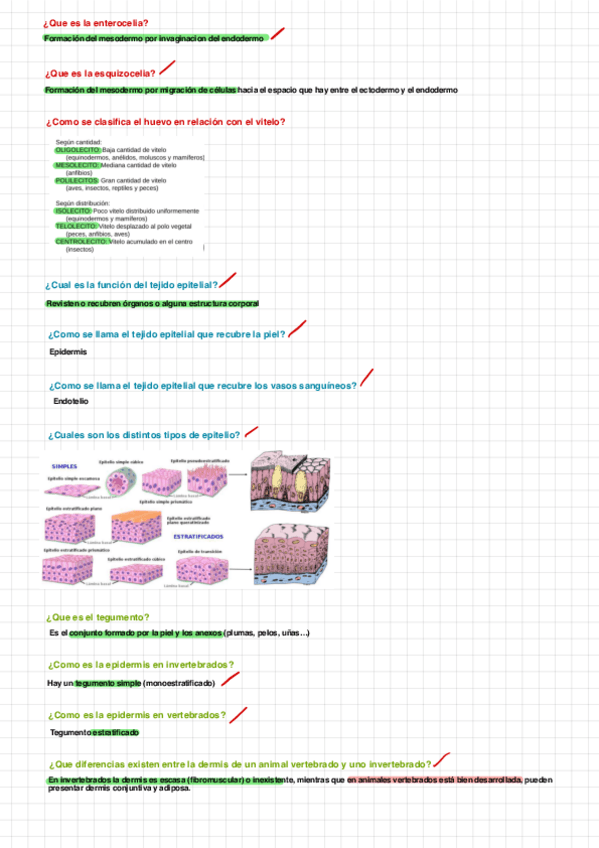 ¿Que es la enterocelia?
Formación del mesodermo por invaginacion del endodermo
¿Que es la esquizocelia?
Formación del mesodermo por migración de células hacia el espacio que hay entre el ectodermo y el endodermo
¿Como se clasifica el huevo en relación con el vitelo?
Según cantidad:
OLIGOLECITO: Baja cantidad de vitelo
(equinodermos, anélidos, moluscos y mamíferos)
MESOLECITO: Mediana cantidad de vitelo
(anfibios)
POLILECITOS: Gran cantidad de vitelo
(aves, insectos, reptiles y peces)
Según distribución:
ISOLECITO: Poco vitelo distribuido uniformemente
(equinodermos y mamíferos)
TELOLECITO: Vitelo desplazado al polo vegetal
(peces, anfibios, aves)
CENTROLECITO: Vitelo acumulado en el centro
(insectos)
¿Cual es la función del tejido epitelial?
Revisten o recubren órganos o alguna estructura corporal
¿Como se llama el tejido epitelial que recubre la piel?
Epidermis
¿Como se llama el tejido epitelial que recubre los vasos sanguíneos?
Endotelio
¿Cuales son los distintos tipos de epitelio?
SIMPLES
Epitelio simple cúbico
Epitelio pseudoestratificado
Epitelio simple escamoso
Lámina basal
Lámina basal
Epitelio simple prismático
Epitelio estratificado plano
Epitelio estratificado
plano queratinizado
ESTRATIFICADOS
Epitelio estratificado prismático
Epitelio estratificado cúbico
Epitelio de transición
Lámina basal
Lámina basal
¿Que es el tegumento?
Es el conjunto formado por la piel y los anexos (plumas, pelos, uñas...)
¿Como es la epidermis en invertebrados?
Hay un tegumento simple (monoestratificado)
¿Como es la epidermis en vertebrados?
Tegumento estratificado
¿Que diferencias existen entre la dermis de un animal vertebrado y uno invertebrado?
En invertebrados la dermis es escasa (fibromuscular) o inexistente, mientras que en animales vertebrados está bien desarrollada, pueden
presentar dermis conjuntiva y adiposa.